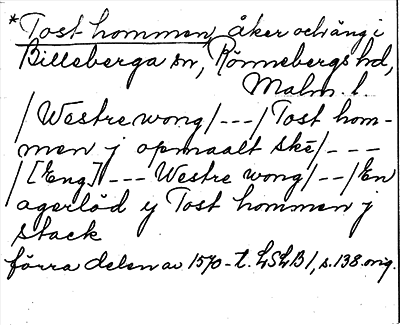 *Tost hommen, åker och äng i
Billeberga sn, Rönnebergs hd,
Malm. l.
/Westre wong/---/Tost hom-
men j opmaalt skē/---
/[Eng]---Westre wong/--/En
agerlöd y Tost hommen j
stack
förra delen av 1570-t. LSLB1, s.138. orig.